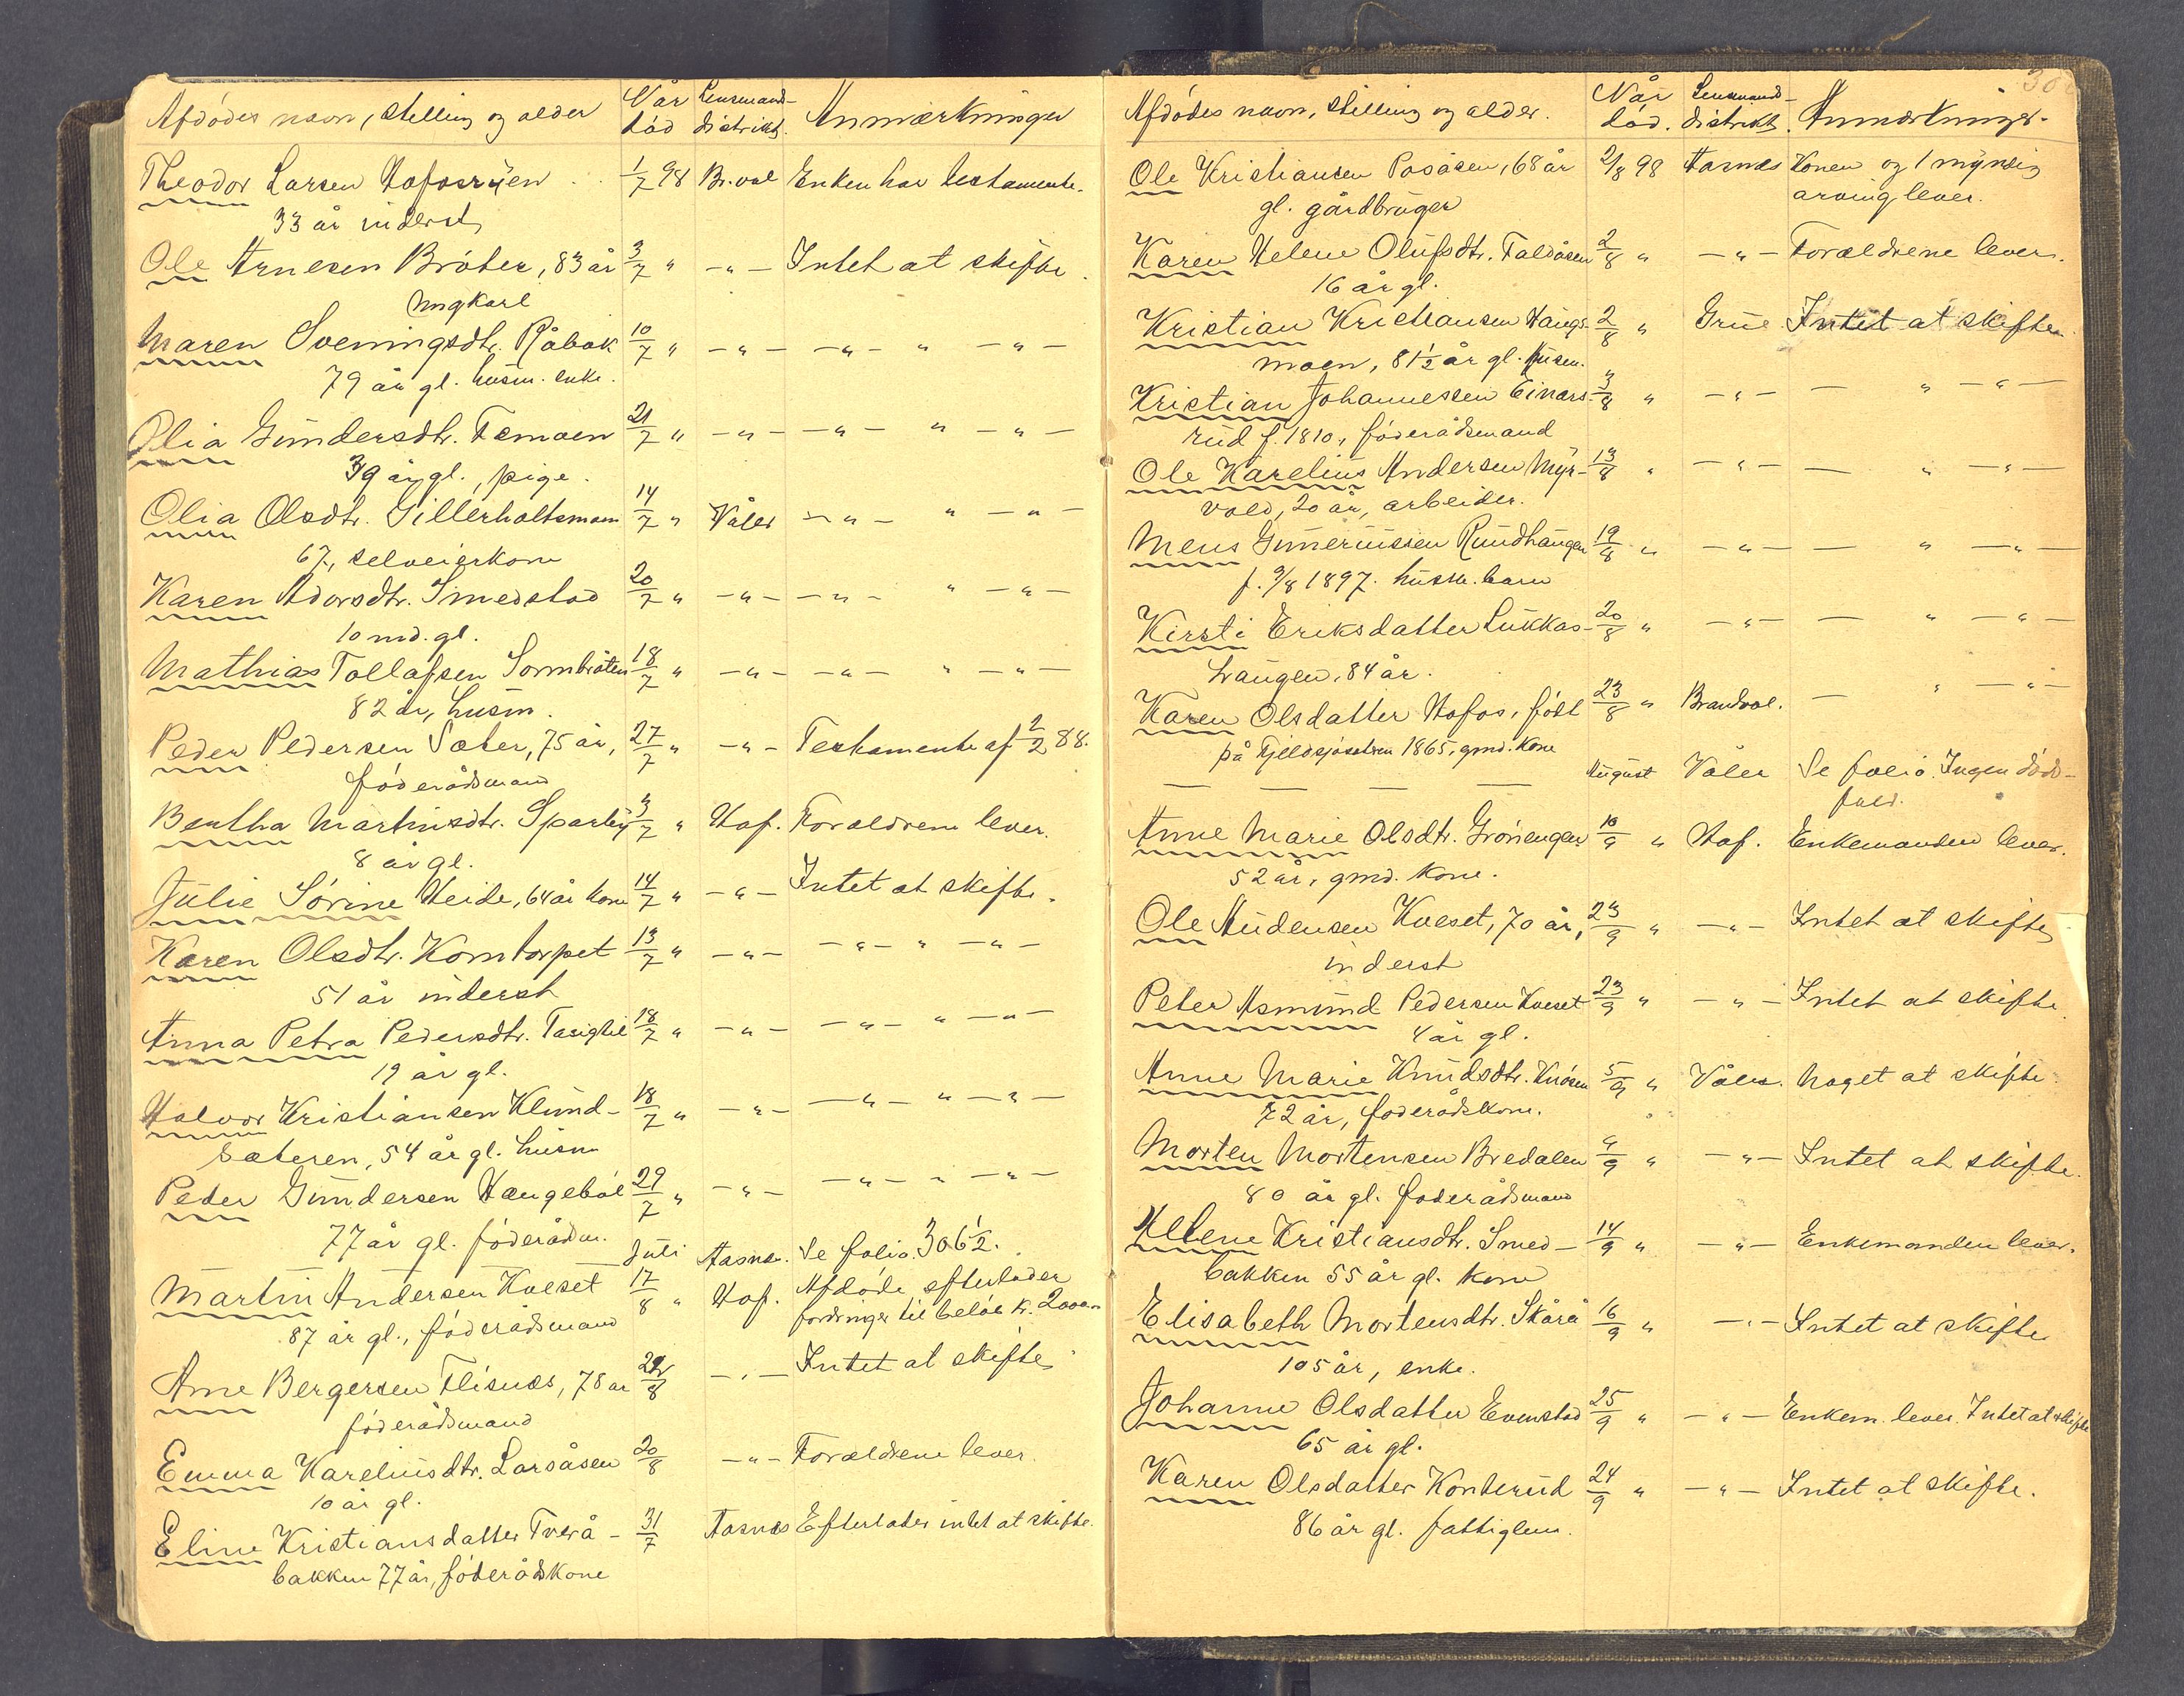 Afdødes navn, stilling og alder Når død Lensmands- distrikt. Anmærkninger
Theodor Larsen Hofosryen 1/7 98 Br.vol Enken har testamente.
33 år inderst
Ole Arnesen Bråten, 83 år 3/7 " - " - Intet at skifte.
Ungkarl
Maren Sveningsdtr. Råbak 10/7 " - " - - " - " - " -
79 år gl. husm. enke.
Olia Gundersdtr. Temoen 21/7 " - " - - " - " - " -
39 år gl., pige.
Olia Olsdtr. Gillerholtsmoen 14/7 " Våler - " - " - " -
67, selveierkone
Karen Adorsdtr. Smedstad 20/7 " - " - - " - " - " -
10 md. gl.
Mathias Tollefsen Sormbråten 18/7 " - " - - " - " - " -
82 år, husm.
Peder Pedersen Sæter, 75 år, 27/7 " - " - Testamente af 2/2 88.
føderådsmand
Bertha Martinsdtr. Sparby 3/7 " Hof. Forældrene lever.
8 år gl.
Julie Sørine Heide, 64 år kone 14/7 " - " - Intet at skifte.
Karen Olsdtr. Korntorpet 13/7 " - " - - " - " - " -
51 år inderst
Anna Petra Pedersdtr. 18/7 " - " - - " - " - " -
19 år gl.
Halvor Kristiansen Klund- 18/7 " - " - - " - " - " -
sæteren, 54 år gl. husm
Peder Gundersen Haugebøl 29/7 " - " - - " - " - " -
77 år gl. føderådm.
Juli Aasnes. Se folio 306 1/2.
Martin Andersen Kveset 17/8 " Hof. Afdøde efterlader
87 år gl., føderådsmand fordringer til beløb kr. 2000.
Arne Bergersen Flisnes, 78 år 22/8 - " - Intet at skifte
føderådsmand
Emma Kareliusdtr. Larsåsen 20/8 - " - Forældrene lever.
10 år gl.
Eline Kristiansdatter Tverå- 31/7 Aasnes Efterlader intet at skifte.
bakken 77 år, føderådskone
Afdødes navn, stilling og alder. Når død. Lensmands- distrikt. Anmærkninger.
Ole Kristiansen Posåsen, 68 år 2/8 98 Aasnes Konen og 1 myndig
gl. gårdbruger arving lever.
Karen Helene Olufsdtr. Faldåsen 2/8 " - " - Forældrene lever.
16 år gl.
Kristian Kristiansen Haugs- 2/8 " Grue Intet at skifte.
moen, 81 1/2 år gl. husm.
Kristian Johannessen Einars- 3/8 " - " - - " - " -
rud f. 1810, føderådsmand
Ole Karelius Andersen Myr- 13/8 " - " - - " - " -
vold, 20 år, arbeider.
Mens Guneriussen Rundhaugen 19/8 " - " - - " - " -
f. 9/8 1897. husm. barn
Kirsti Eriksdatter Lukkas- 20/8 " - " - - " - " -
haugen, 84 år.
Karen Olsdatter Hofos, født 23/8 " Brandvol. - " - " -
på Fjeldsjøsætren 1865, gmd. kone
— — — — August Våler Se folio. Ingen døds-
fald.
Anne Marie Olsdtr. Grønengen 10/9 " Hof. Enkemanden lever.
52 år, gmd. kone.
Ole Audensen Kveset, 70 år, 23/9 " - " - Intet at skifte
inderst
Peter Asmund Pedersen Kveset 23/9 " - " - Intet at skifte.
4 år gl.
Anne Marie Knudsdtr. 5/9 " Våler. Noget at skifte.
72 år, føderådskone.
Morten Mortensen Bredalen 4/9 " - " - Intet at skifte.
80 år gl. føderådsmand
Helene Kristiansdtr. Smed- 14/9 " - " - Enkemanden lever.
bakken 55 år gl. kone
Elisabeth Mortensdtr. Skårå 16/9 " - " - Intet at skifte
105 år, enke.
Johanne Olsdatter Evenstad 25/9 " - " - Enkem. lever. Intet at skifte
65 år gl.
Karen Olsdatter Konterud 24/9 " - " - Intet at skifte.
86 år gl. fattiglem.